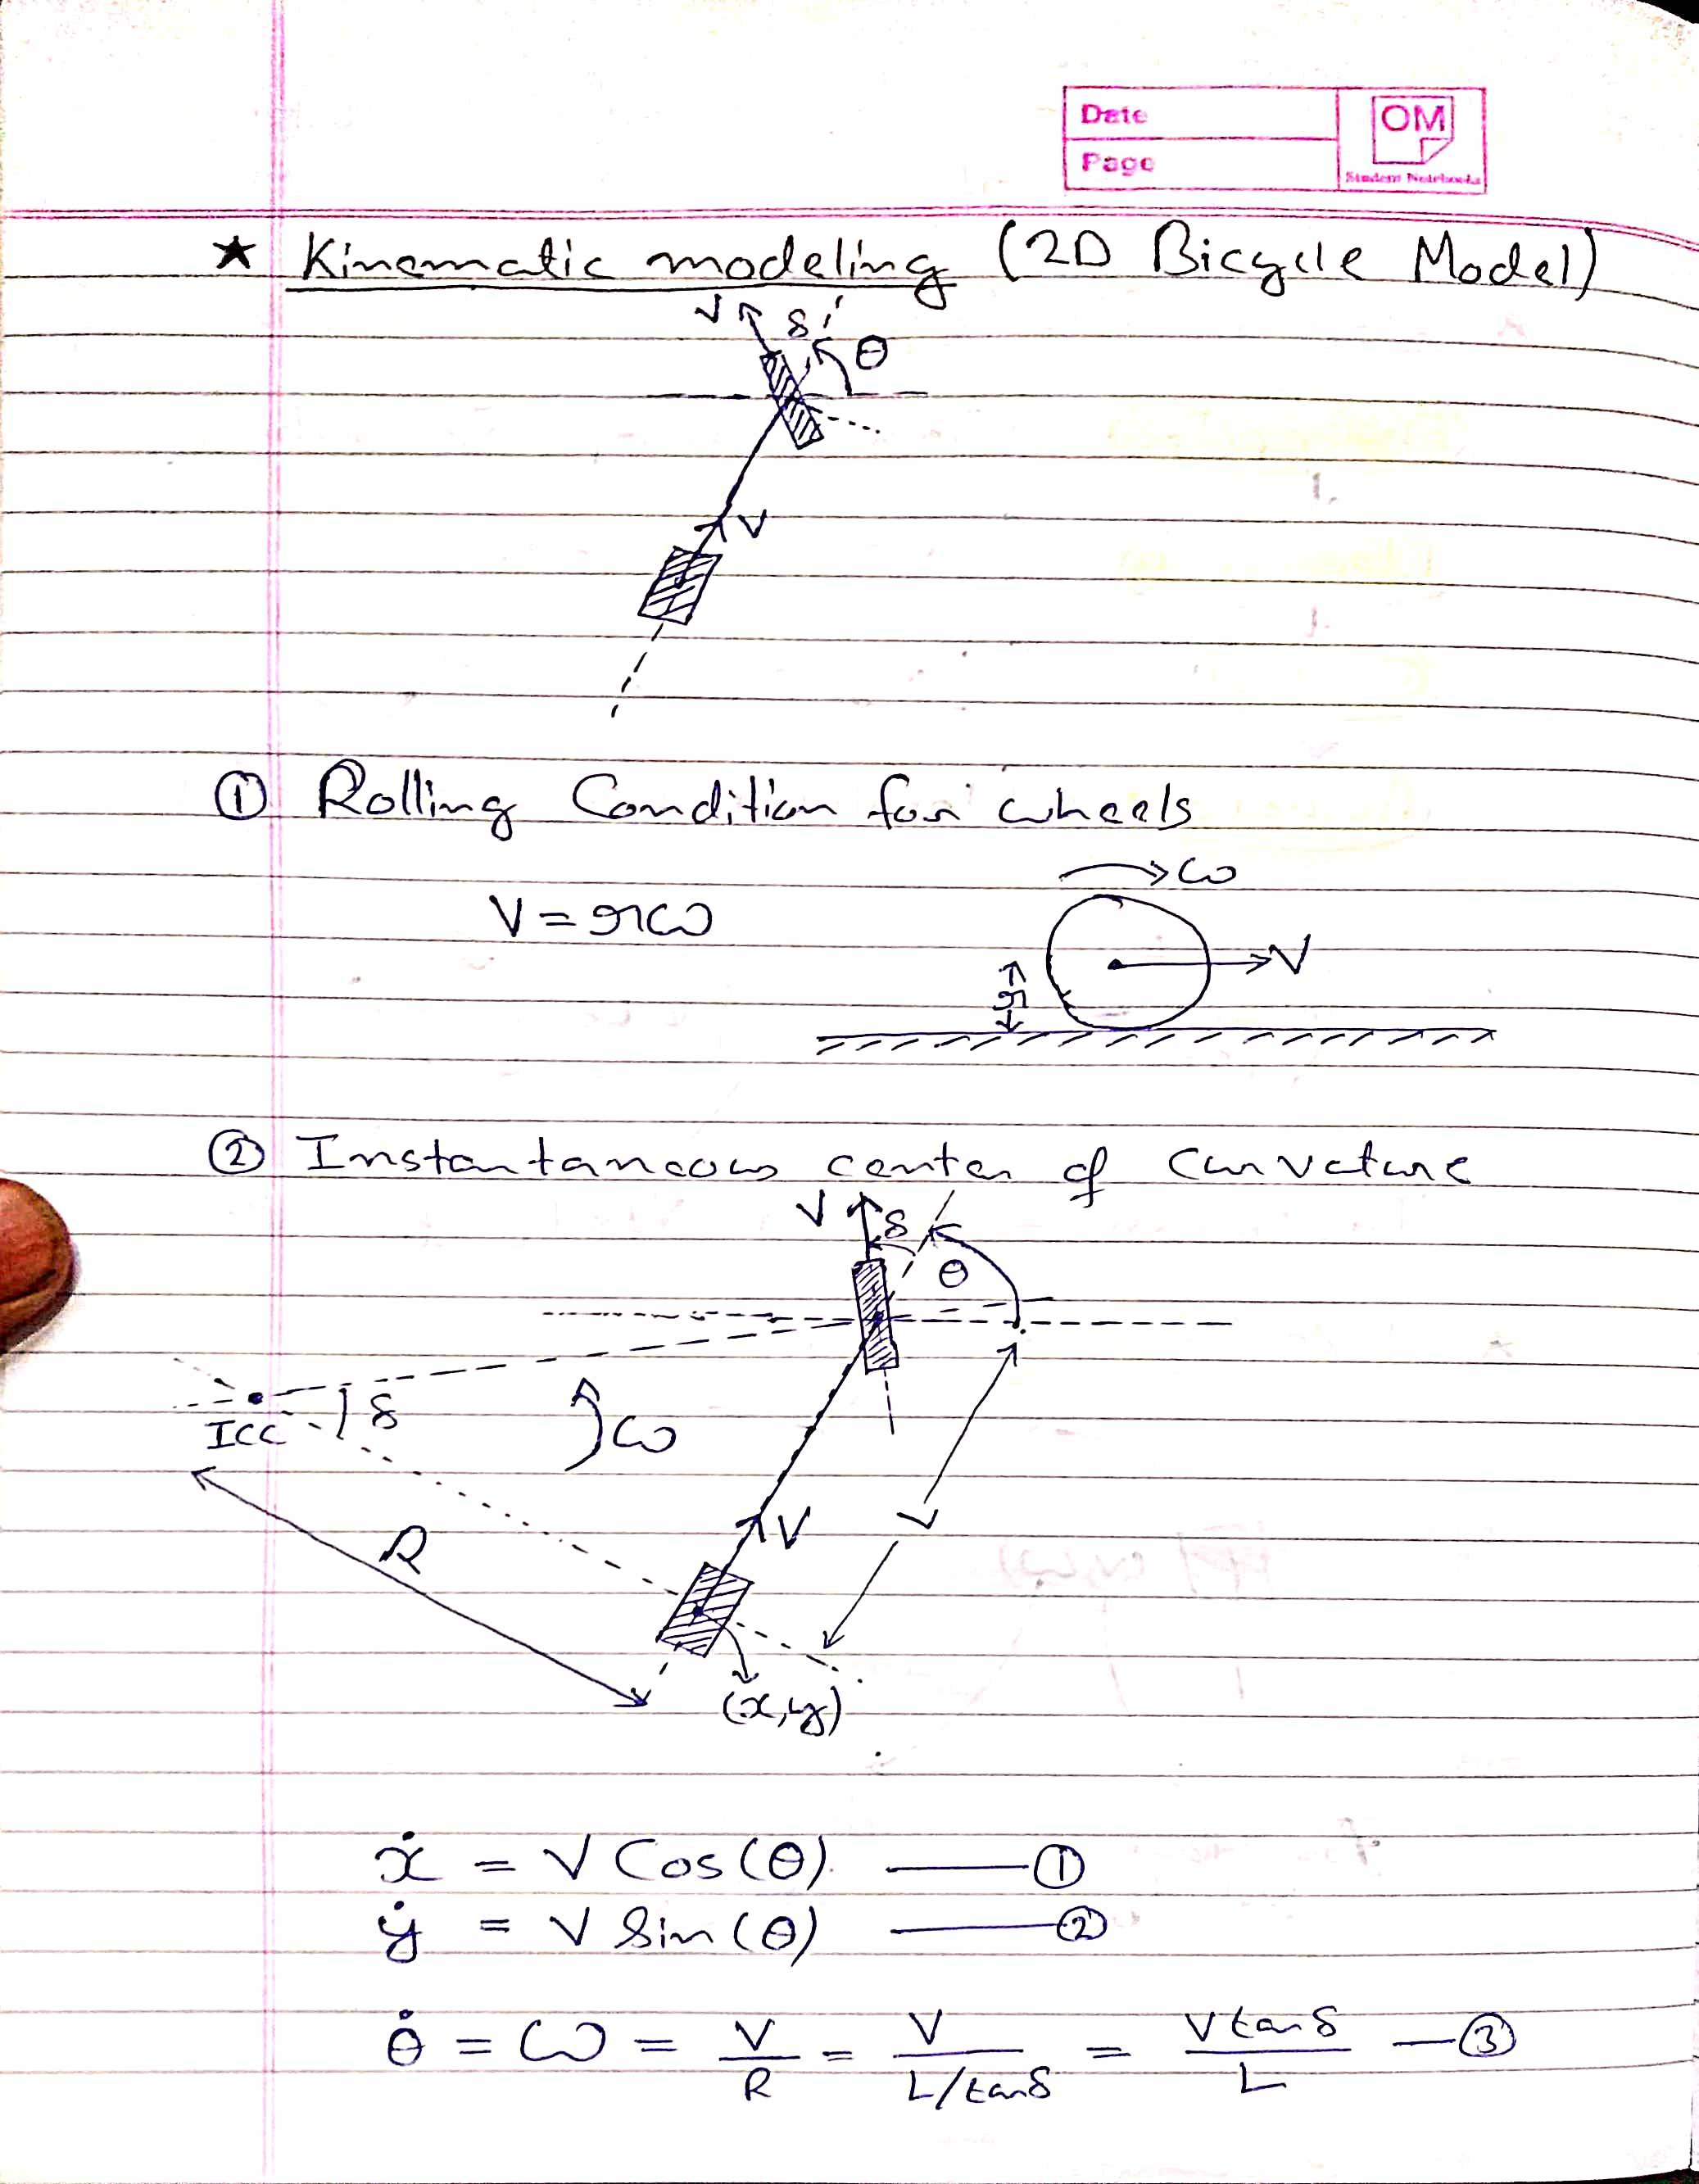 Date
Page
OM
Student Notebooks
★ Kinematic modeling (2D Bicycle Model)
V δ θ
V
① Rolling Condition for wheels
ω
V = rω
V
r
② Instantaneous center of curvature
V δ
θ
ICC δ
ω
R
V
L
(x,y)
ẋ = V Cos(θ) —— ①
ẏ = V Sin(θ) —— ②
θ̇ = ω = V/R = V/(L/tanδ) = V tanδ/L — ③